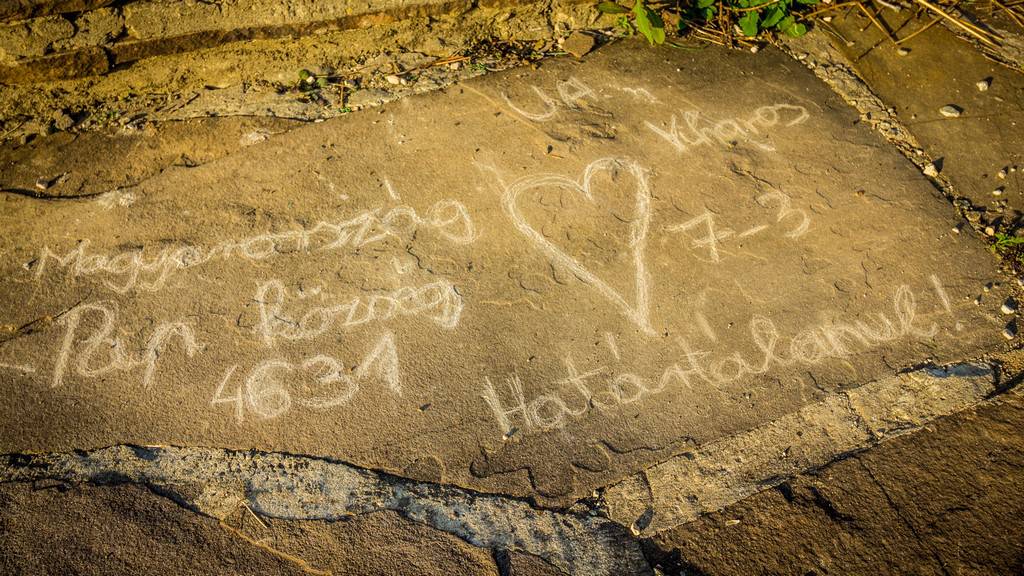 UA-n
Kháros
7-3
Magyarország
Pap község
4631
Határtalanul!